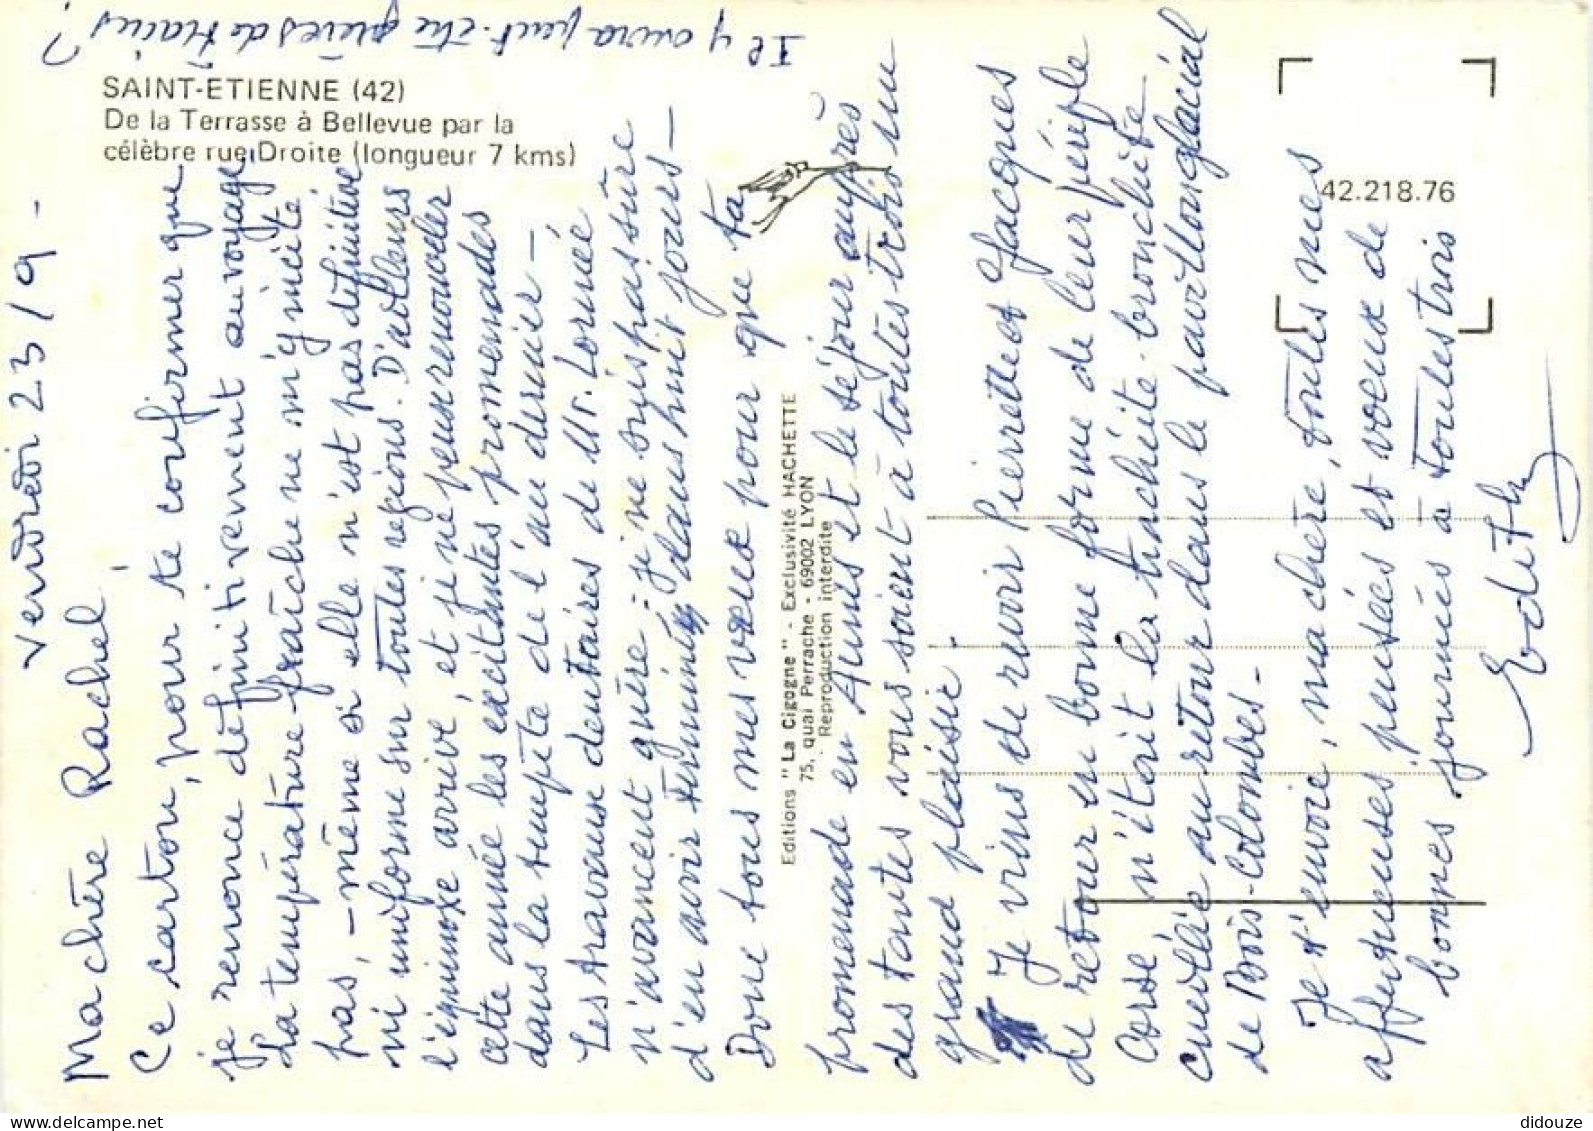 Il y aura peut-être grèves de trains ?
SAINT-ETIENNE (42)
De la Terrasse à Bellevue par la
célèbre rue Droite (longueur 7 kms)
42.218.76
Editions "La Cigogne" - Exclusivité HACHETTE
75, quai Perrache - 69002 LYON
Reproduction interdite
Vendredi 23/9 -
Ma chère Rachel,
Ce carton, pour te confirmer que
je renonce définitivement au voyage,
La température fraîche ne m'y incite
pas, - même si elle n'est pas définitive
ni uniforme sur toutes régions. D'ailleurs
l'équinoxe arrive, et je ne peux renouveler
cette année les excitantes promenades
dans la tempête de l'an dernier -
Les travaux dentaires de Mr. Lornée
n'avancent guère - je ne suis pas sûre
d'en avoir terminé dans huit jours -
Donc tous mes vœux pour que ta
promenade en Aunis et le séjour auprès
des tantes vous soient à toutes trois un
grand plaisir.
Je viens de revoir Pierrette et Jacques
de retour en bonne forme de leur périple
Corse, n'était la trachéite-bronchite
cueillie au retour dans le pavillon glacial
de Bois-Colombes -
Je t'envoie, ma chère, toutes mes
affectueuses pensées et vœux de
bonnes journées à toutes trois
Edith